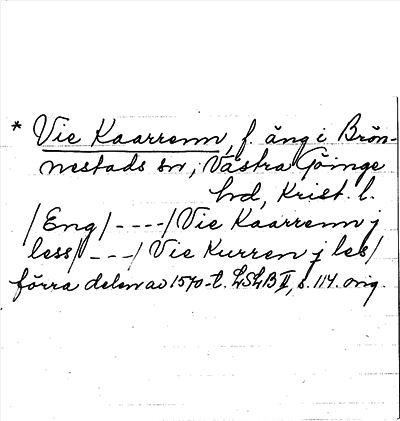 * Vie Kaarrenn, f. äng i Brön-
nestads sn, Västra Göinge
hd, Krist. l.
/Eng/ ----/ Vie Kaarrenn j
less/ ---/ Vie Kurren j les/
förra delen av 1570-t. LSLB II, s. 114. orig.